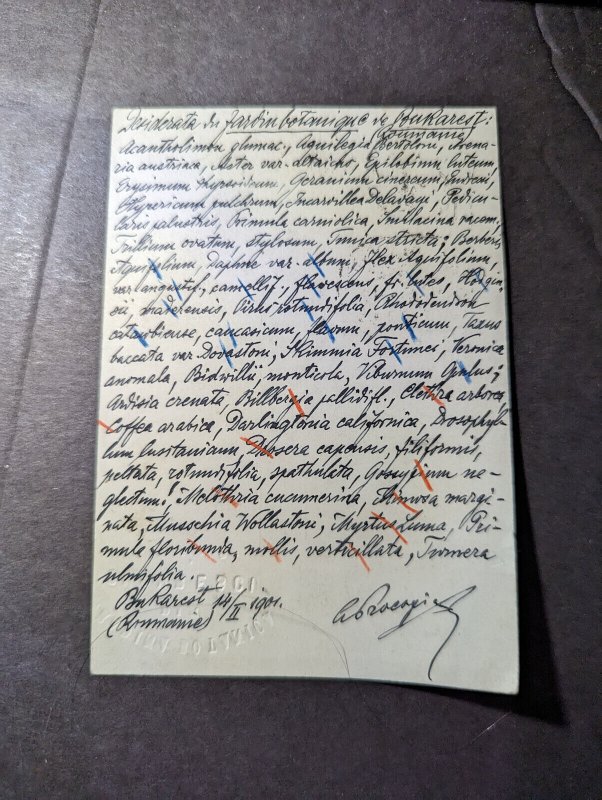 Desiderata du Jardin botanique de Bukarest:
(Roumanie)
Acantholimon glumac., Aquilegia Bertoloni, Arena-
ria austriaca, Aster var. altaicus, Epilobium luteum,
Erysimum thyrsoideum, Geranium cinereum, Endresi,
Hypericum pulchrum, Incarvillea Delavayi, Pedicu-
laris palustris, Primula carniolica, Smilacina racem.,
Trillium ovatum, stylosum, Tunica stricta; Berberis
Aquifolium, Daphne var. album, Ilex Aquifolium,
var. angustif., camelliof., flavescens, fr. luteo,
maderensis, Pirus rotundifolia, Rhododendron
catawbiense, caucasicum, flavum, ponticum, Taxus
baccata var. Dovastoni, Skimmia Fortunei, Veronica
anomala, Bidwillii, monticola, Viburnum Opulus;
Ardisia crenata, Billbergia pallidifl., Clethra arborea,
Coffea arabica, Darlingtonia californica, Drosophyl-
lum lusitanicum, Drosera capensis, filiformis,
peltata, rotundifolia, spathulata, Gossypium ne-
glectum, Melothria cucumerina, Mimosa margi-
nata, Musschia Wollastoni, Myrtus Luma, Pri-
mula floribunda, mollis, verticillata, Turnera
ulmifolia.
Bukarest 14/II 1901.
(Roumanie)